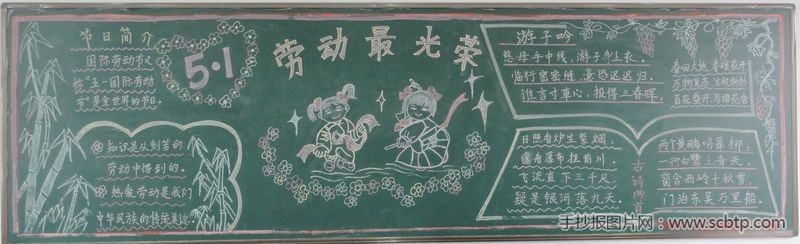 节日简介
国际劳动节又
称"五一国际劳动
节"是全世界的节日。
5·1
知识是从刻苦的
劳动中得到的。
热爱劳动是我们
中华民族的传统美德
劳动最光荣
游子吟
慈母手中线，游子身上衣。
临行密密缝，意恐迟迟归。
谁言寸草心，报得三春晖。
春回大地，春暖花开
日照香炉生紫烟，
遥看瀑布挂前川。
飞流直下三千尺，
疑是银河落九天。
古诗两首
两个黄鹂鸣翠柳，
一行白鹭上青天。
窗含西岭千秋雪，
门泊东吴万里船。
手抄报图片网：www.scbtp.com